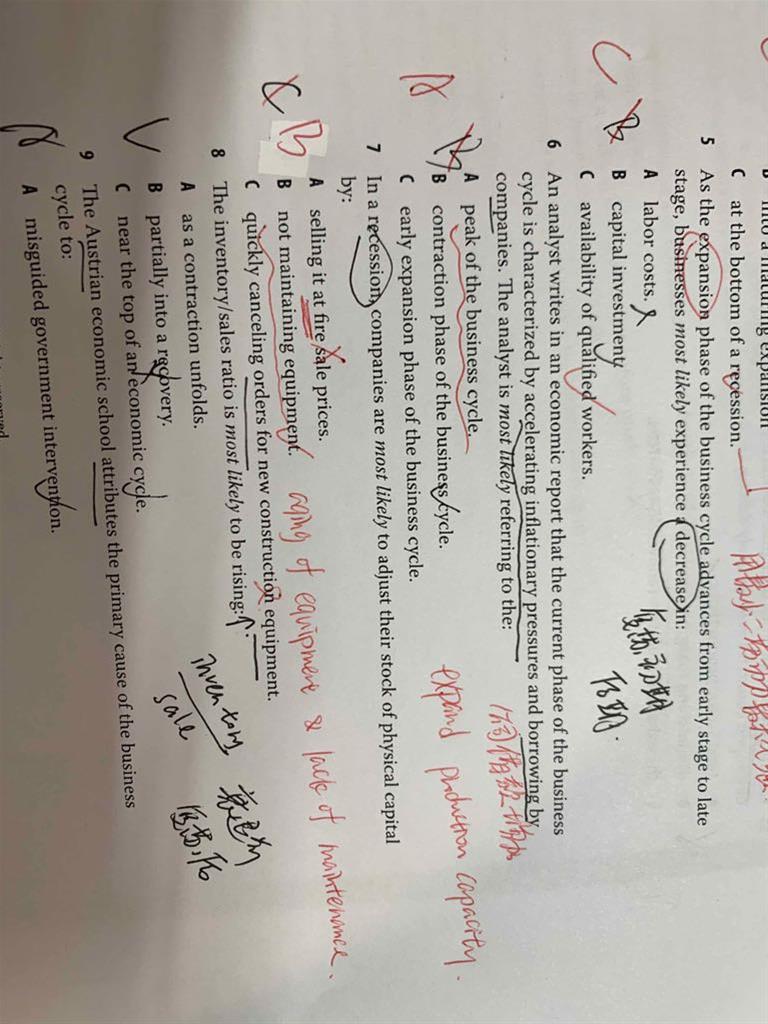 into a maturing expansion
C at the bottom of a recession.
5 As the expansion phase of the business cycle advances from early stage to late
stage, businesses most likely experience a decrease in:
A labor costs.
B capital investment.
C availability of qualified workers.
C B
6 An analyst writes in an economic report that the current phase of the business
cycle is characterized by accelerating inflationary pressures and borrowing by
companies. The analyst is most likely referring to the:
A peak of the business cycle.
B contraction phase of the business cycle.
C early expansion phase of the business cycle.
A B
expand production capacity.
7 In a recession, companies are most likely to adjust their stock of physical capital
by:
A selling it at fire sale prices.
B not maintaining equipment.
C quickly canceling orders for new construction equipment.
C B
aging of equipment & lack of maintenance.
8 The inventory/sales ratio is most likely to be rising:
A as a contraction unfolds.
B partially into a recovery.
C near the top of an economic cycle.
inventory
sale
9 The Austrian economic school attributes the primary cause of the business
cycle to:
A misguided government intervention.
A